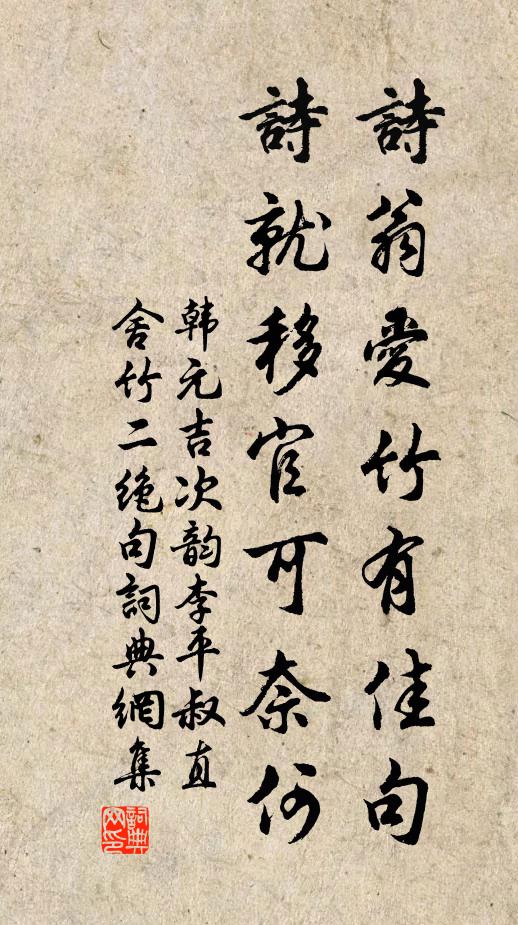 詩翁愛竹有佳句
詩就移官可奈何
韩元吉次韵李平叔直
舍竹二绝句詞典網集
詞典
网印